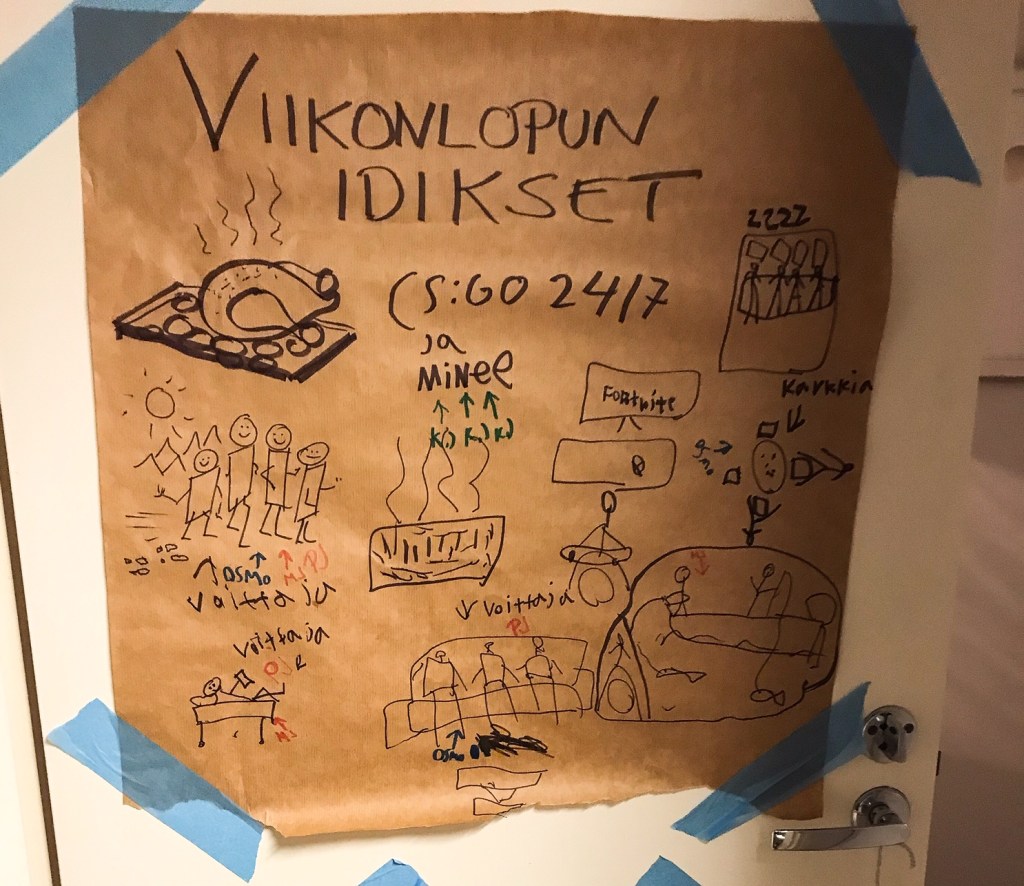 VIIKONLOPUN
IDIKSET
CS:GO 24/7
ja
MiNEE
KJ KJ KJ
ZZZZ
Fortnite
Karkkia
OSMO
MJ PJ
Voittaja
Voittaja
PJ
MJ
Voittaja
PJ
MJ
OSMO